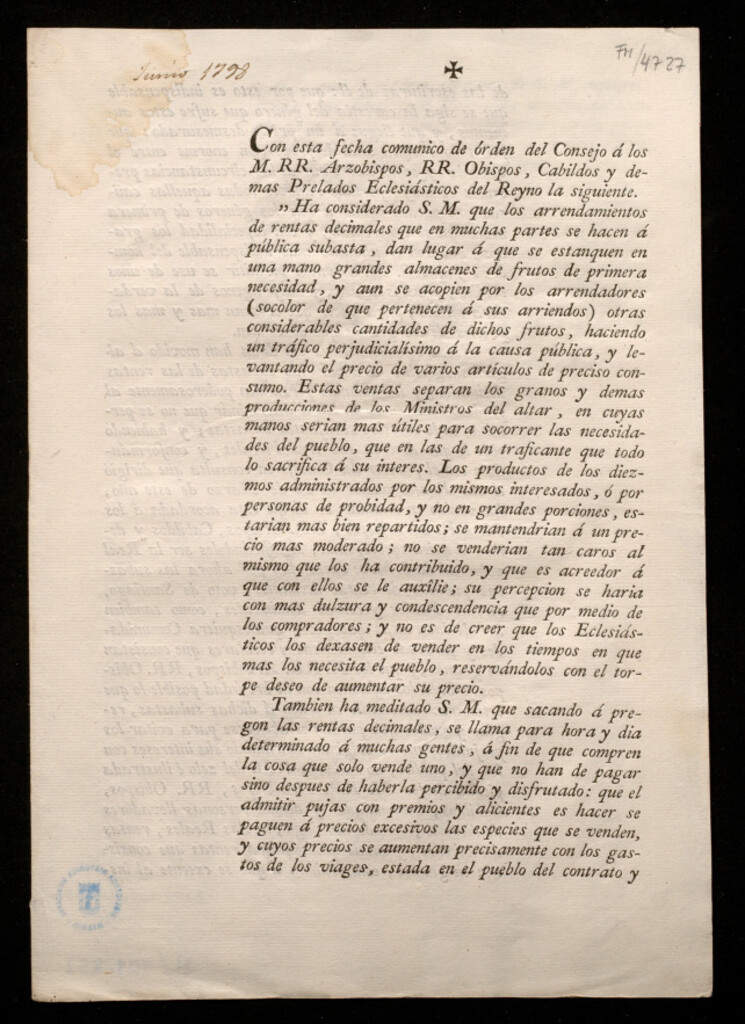 Junio 1798
✠
Fn/4727
Con esta fecha comunico de órden del Consejo á los
M. RR. Arzobispos, RR. Obispos, Cabildos y de-
mas Prelados Eclesiásticos del Reyno la siguiente.
„Ha considerado S. M. que los arrendamientos
de rentas decimales que en muchas partes se hacen á
pública subasta, dan lugar á que se estanquen en
una mano grandes almacenes de frutos de primera
necesidad, y aun se acopien por los arrendadores
(socolor de que pertenecen á sus arriendos) otras
considerables cantidades de dichos frutos, haciendo
un tráfico perjudicialísimo á la causa pública, y le-
vantando el precio de varios artículos de preciso con-
sumo. Estas ventas separan los granos y demas
producciones de los Ministros del altar, en cuyas
manos serian mas útiles para socorrer las necesida-
des del pueblo, que en las de un traficante que todo
lo sacrifica á su interes. Los productos de los diez-
mos administrados por los mismos interesados, ó por
personas de probidad, y no en grandes porciones, es-
tarian mas bien repartidos; se mantendrian á un pre-
cio mas moderado; no se venderian tan caros al
mismo que los ha contribuido, y que es acreedor á
que con ellos se le auxîlie; su percepcion se haria
con mas dulzura y condescendencia que por medio de
los compradores; y no es de creer que los Eclesiás-
ticos los dexasen de vender en los tiempos en que
mas los necesita el pueblo, reservándolos con el tor-
pe deseo de aumentar su precio.
Tambien ha meditado S. M. que sacando á pre-
gon las rentas decimales, se llama para hora y dia
determinado á muchas gentes, á fin de que compren
la cosa que solo vende uno, y que no han de pagar
sino despues de haberla percibido y disfrutado: que el
admitir pujas con premios y alicientes es hacer se
paguen á precios excesivos las especies que se venden,
y cuyos precios se aumentan precisamente con los gas-
tos de los viages, estada en el pueblo del contrato y